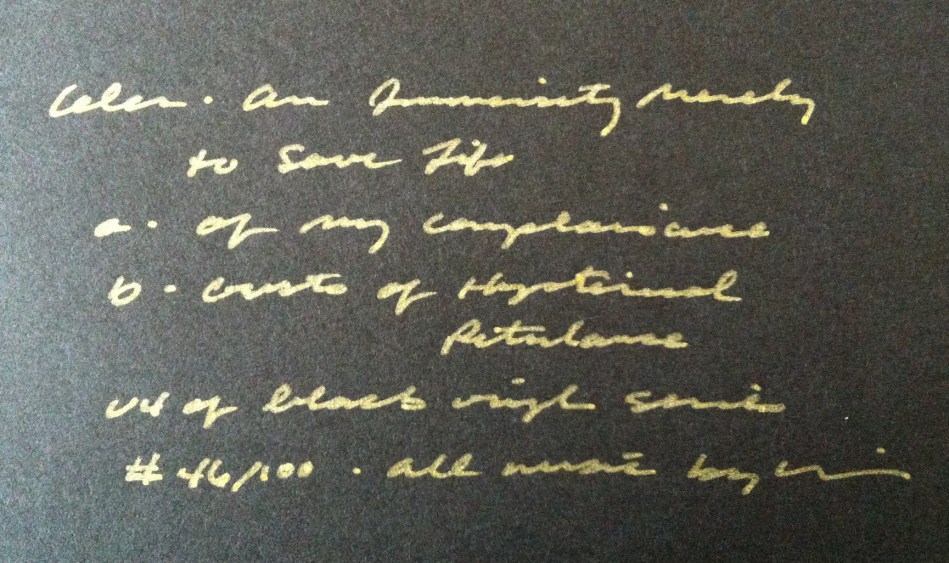 Celer · An Immensity Merely
to Save Life
a · of my complaisance
b · Gusts of Hysterical
Petulance
v4 of black vinyl series
#46/100 · all music by